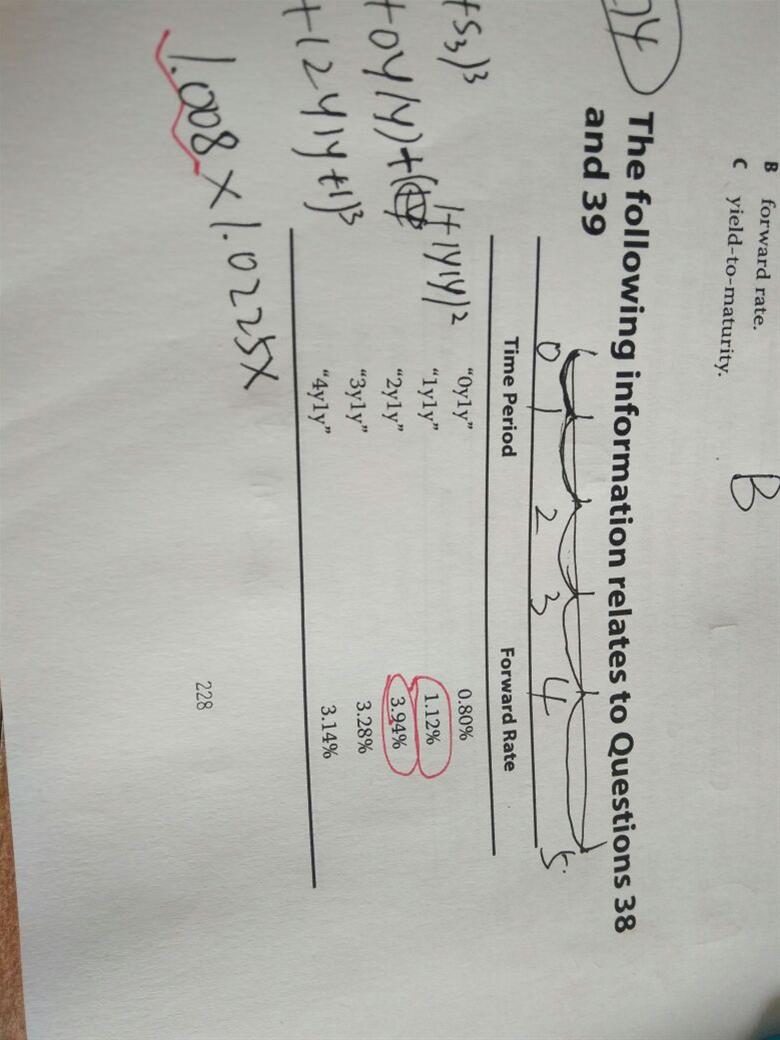 B forward rate.
C yield-to-maturity.
B
The following information relates to Questions 38
and 39
0 1 2 3 4 5.
Time Period Forward Rate
“0y1y” 0.80%
“1y1y” 1.12%
“2y1y” 3.94%
“3y1y” 3.28%
“4y1y” 3.14%
+S3)³
+0y1y)+( 1+1y1y)²
+12y1y+1)³
1.008 × 1.0225×
228